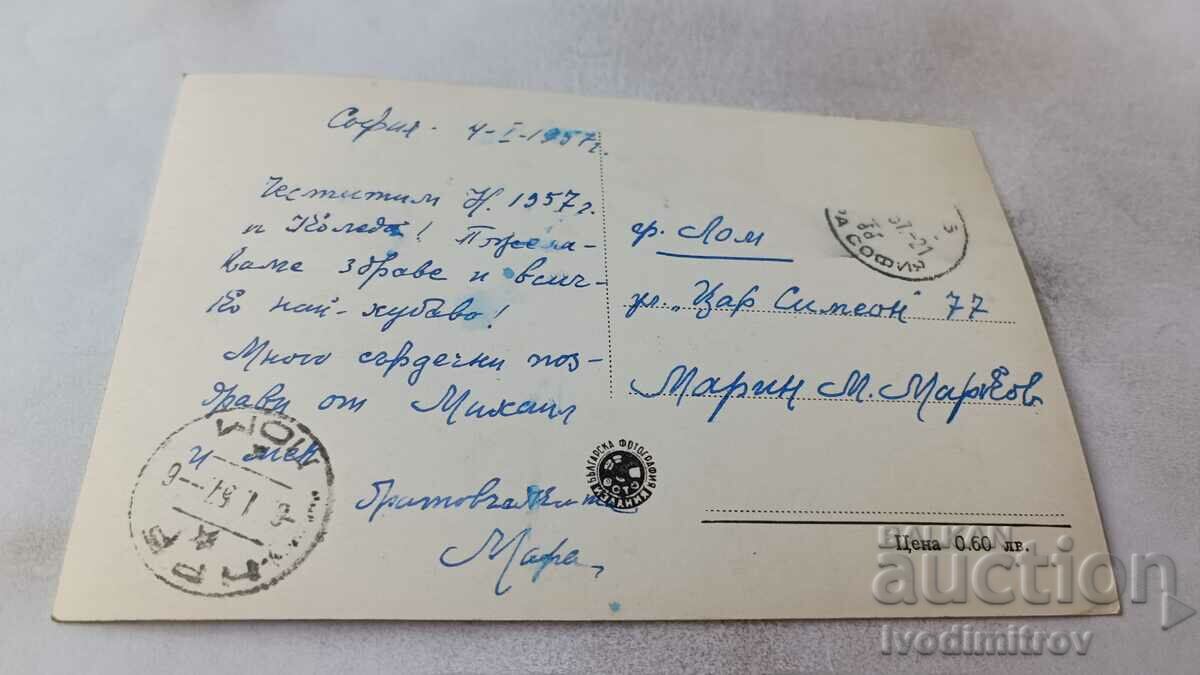 София. 4-I-1957г.
Честитим Н. 1957г.
и Коледа! Пожела-
ваме здраве и всич-
ко най-хубаво!
Много сърдечни поз-
драви от Михаил
и мен
братовчедката
Мара
гр. Лом
ул. "Цар Симеон" 77
Марин М. Марков
БЪЛГАРСКА ФОТОГРАФИЯ
ИЗДАНИЯ
Цена 0.60 лв.
СОФИЯ
57.-21
ЛОМ
ГАРА
BALKAN
auction
Ivodimitrov